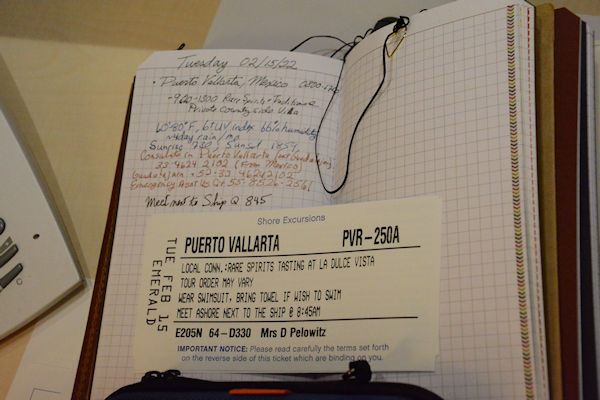 Tuesday 02/15/22
• Puerto Vallarta, Mexico 0800-1
-920-1300 Rare Spirits - Traditional
Private Country side Villa
60°-80°F, 6 UV index 66% humidity
~4day rain/mo
Sunrise 720, Sunset 1857
Consulate in Puerto Vallarta
33-4624 2102 (From Mexico)
Guadalajara +52-33 46242102
Emergency Asst US Cit 55-8526-2561
Meet next to Ship @ 845
Shore Excursions
PUERTO VALLARTA PVR-250A
LOCAL CONN.:RARE SPIRITS TASTING AT LA DULCE VISTA
TOUR ORDER MAY VARY
WEAR SWIMSUIT, BRING TOWEL IF WISH TO SWIM
MEET ASHORE NEXT TO THE SHIP @ 8:45AM
E205N 64-D330 Mrs D Pelowitz
IMPORTANT NOTICE: Please read carefully the terms set forth
on the reverse side of this ticket which are binding on you.
TUE FEB 15
EMERALD